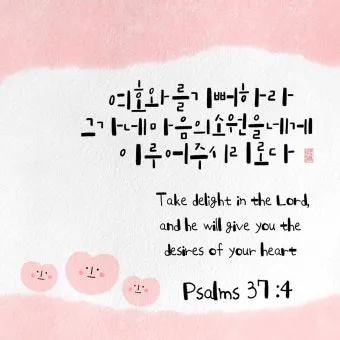 여호와를기뻐하라
그가네마음의소원을네게
이루어주시리로다
Take delight in the Lord,
and he will give you the
desires of your heart
Psalms 37:4